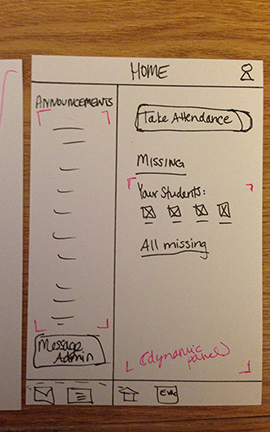 HOME
ANNOUNCEMENTS
Message
Admin
Take Attendance
MISSING
Your Students:
All missing
(dynamic
panel)